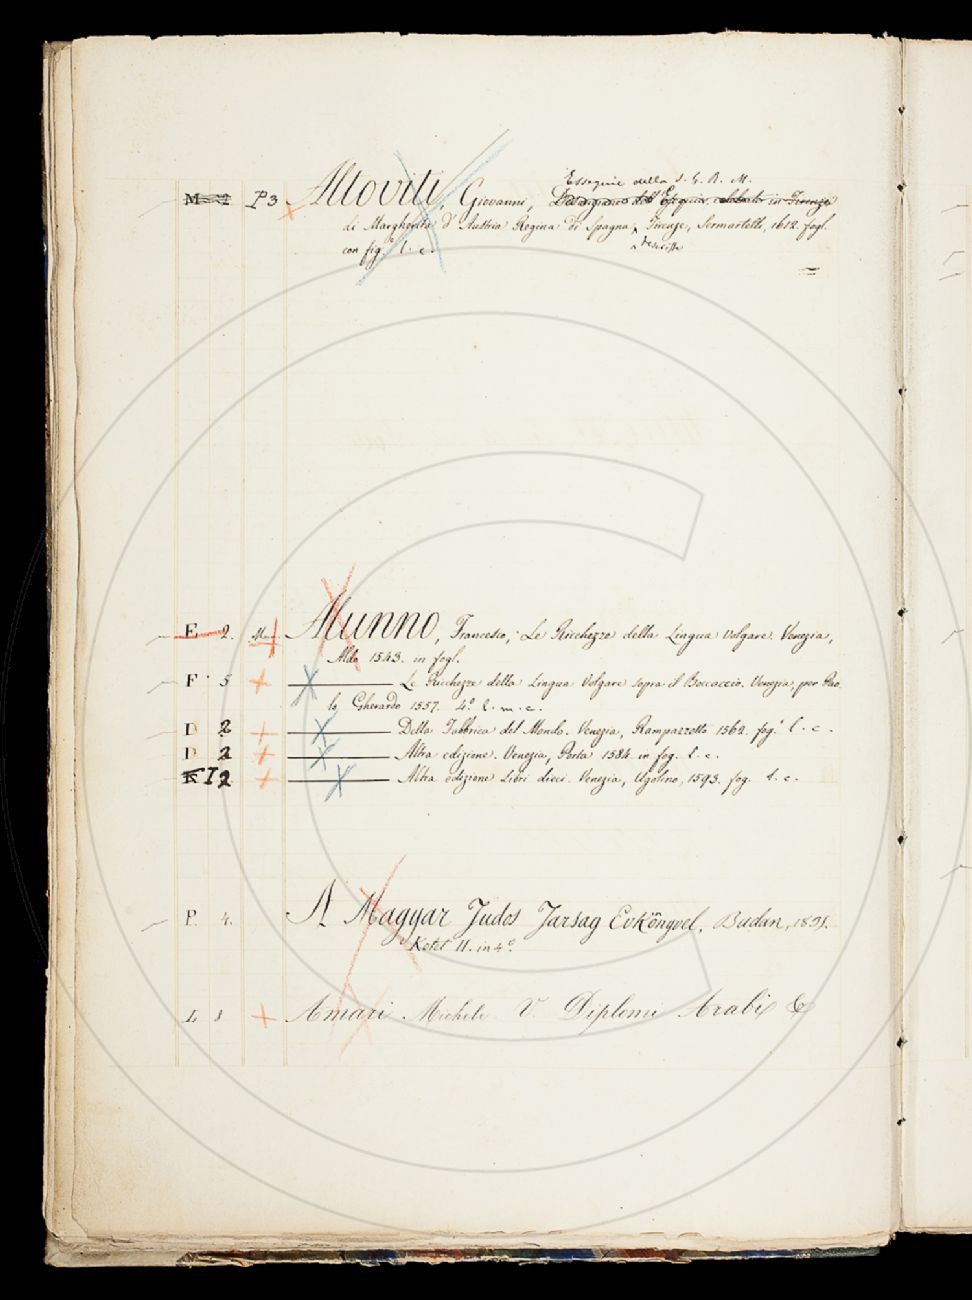 Essequie della S. C. R. M.
M 2 P3 Altoviti, Giovanni, Essequie celebrate in Firenze
di Margherita d'Austria Regina di Spagna, Firenze, Sermartelli, 1612. fogl.
descritte
con fig.e l. c.
E 2. M Alunno, Francesco, Le Ricchezze della Lingua Volgare. Venezia,
Aldo 1543. in fogl.
F 5 Le Ricchezze della Lingua Volgare sopra il Boccaccio. Venezia, per Pao-
lo Gherardo 1557. 4.º l. m. c.
D 2 Della Fabbrica del Mondo. Venezia, Rampazzetto 1562. fog.º l. c.
D 2 Altra edizione. Venezia, Porta 1584. in fog. l. c.
K I 2 Altra edizione Libri dieci. Venezia, Ugolino, 1593. fog. l. c.
P. 4. A Magyar Tudos Tarsag Evkönyvei. Budan, 1835.
Kotet II. in 4º
L 8 Amari Michele V. Diplomi Arabi &